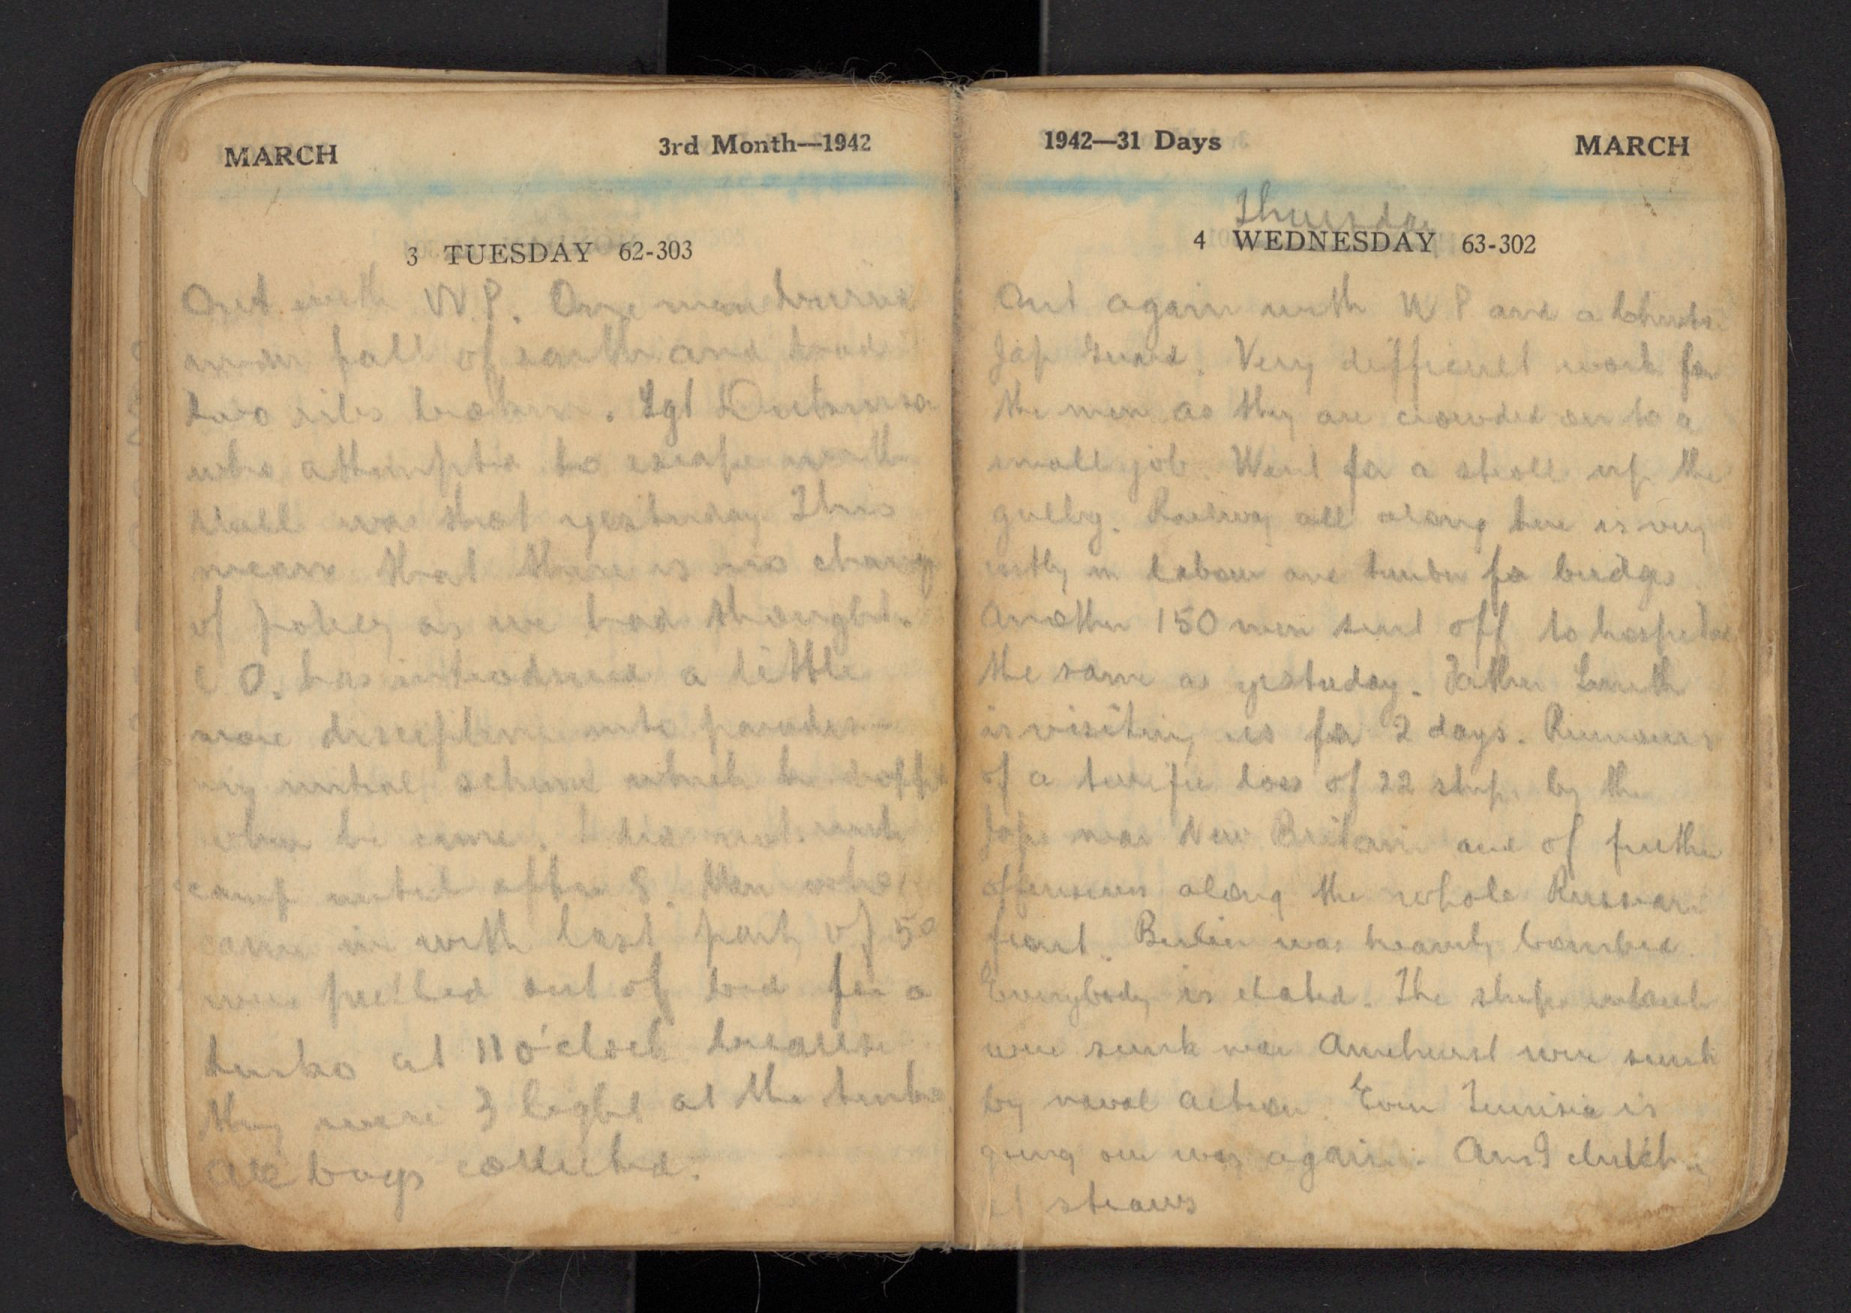 MARCH 3rd Month—1942
3 TUESDAY 62-303
Out with W.P. One man buried
under fall of earth and had
two ribs broken. Sgt
who attempted to escape with
was shot yesterday This
means that there is no change
of policy as we had thought.
C O. has introduced a little
more discipline into parades—
my initial scheme which he dropped
when he came. I did not reach
camp until after 8. Men who
came in with last party of 50
were pulled out of bed for a
tenko at 11 o'clock because
they were 3 light at the tenko
All bags collected.
1942—31 Days MARCH
Thursday
4 WEDNESDAY 63-302
Out again with W P and a
Jap Guard. Very difficult work for
the men as they are crowded on to a
small job. Went for a stroll up the
gulley. Railway all along here is very
costly in labour and timber for bridges.
Another 150 men sent off to hospital
the same as yesterday. Father Smith
is visiting us for 2 days. Rumours
of a terrific loss of 22 ships by the
Japs near New Britain and of further
offensives along the whole Russian
front. Berlin was heavily bombed.
Everybody is elated. The ships which
were sunk near Amehurst were sunk
by naval action. Even Tunisia is
going our way again. And I clutch
at straws